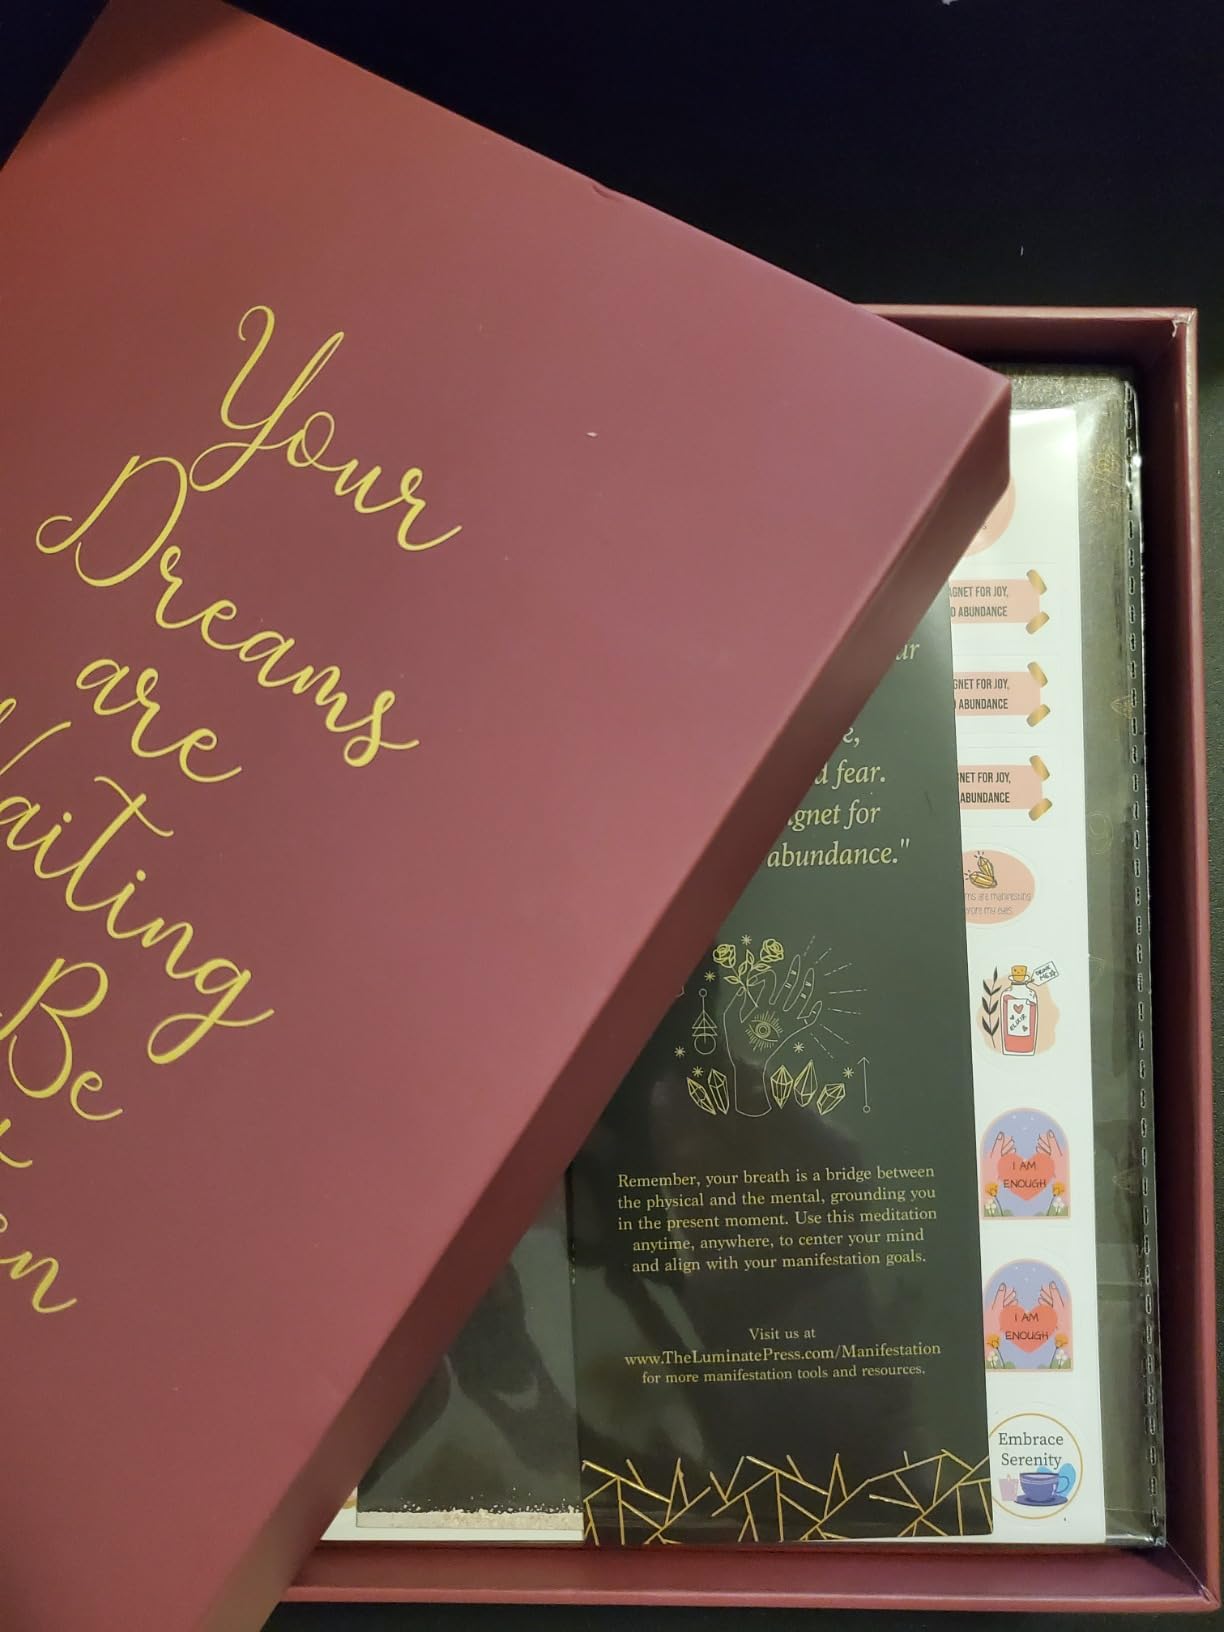 Your
Dreams
are
Waiting
Be
abundance."
d fear.
gnet for
Remember, your breath is a bridge between
the physical and the mental, grounding you
in the present moment. Use this meditation
anytime, anywhere, to center your mind
and align with your manifestation goals.
Visit us at
www.TheLuminatePress.com/Manifestation
for more manifestation tools and resources.
GNET FOR JOY,
D ABUNDANCE
GNET FOR JOY,
ABUNDANCE
NET FOR JOY,
ABUNDANCE
ms are manifesting
fore my eyes
DRINK
ME
ELIXIR
I AM
ENOUGH
I AM
ENOUGH
Embrace
Serenity